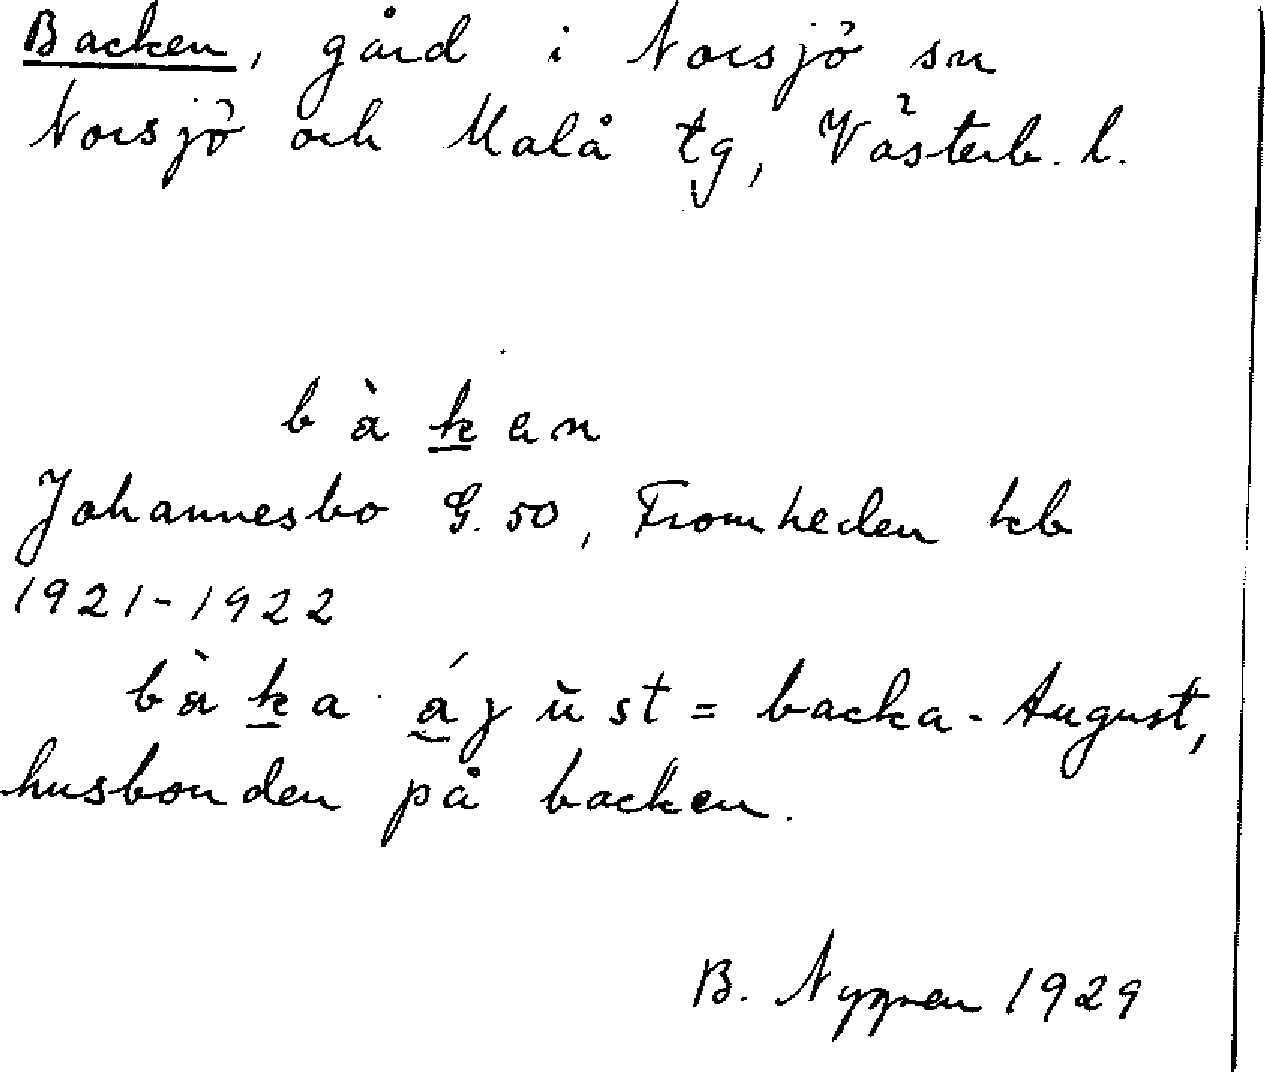 Backen, gård i Norsjö sn
Norsjö och Malå tg, Västerb. l.
bàkan
Johannesbo G. 50, Fromheden kb
1921-1922
bàka ágùst = backa-August,
husbonden på backen.
B. Nygren 1929